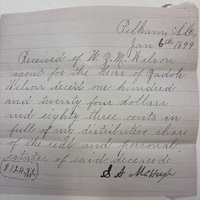 Pelham, Ala,
Jan 6th 1899
Received of W. Z. M. Wilson
agent for the heirs of Zadok
Wilson dec'd one hundred
and twenty four dollars
and eighty three cents in
full of my distributive share
of the real and personal
estate of said deceased
$124.83
S. A.